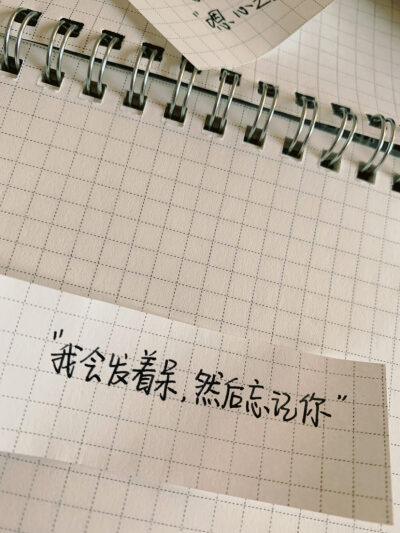 "我会发着呆，然后忘记你"